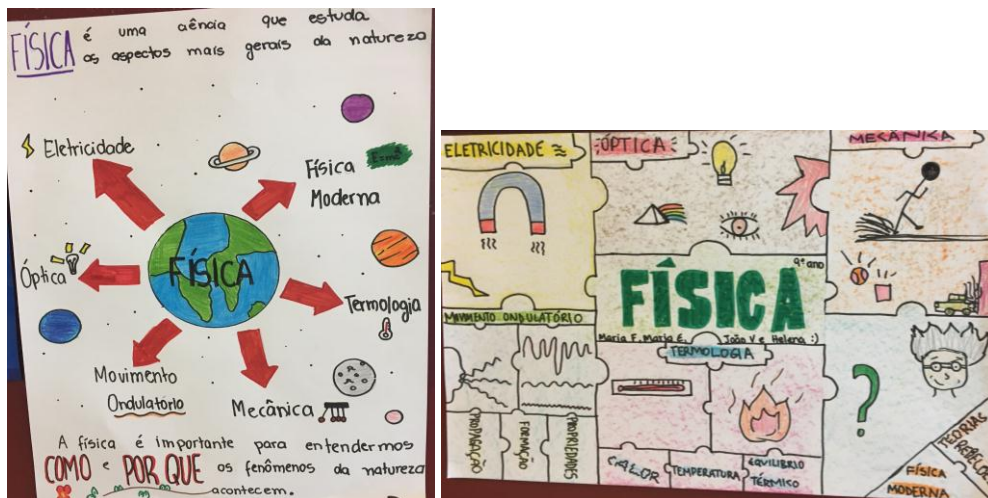 FÍSICA é uma ciência que estuda
os aspectos mais gerais da natureza
Eletricidade
Física
Moderna
E=mc²
Óptica
FÍSICA
Termologia
Movimento
Ondulatório
Mecânica
A física é importante para entendermos
COMO e POR QUE os fenômenos da natureza
acontecem.
ELETRICIDADE
ÓPTICA
MECÂNICA
9º ano
FÍSICA
Maria F, Maria E, João V e Helena :)
MOVIMENTO ONDULATÓRIO
TERMOLOGIA
PROPAGAÇÃO
FORMAÇÃO
PROPRIEDADES
CALOR
TEMPERATURA
EQUILIBRIO
TÉRMICO
?
TEORIAS
FÍSICA
MODERNA